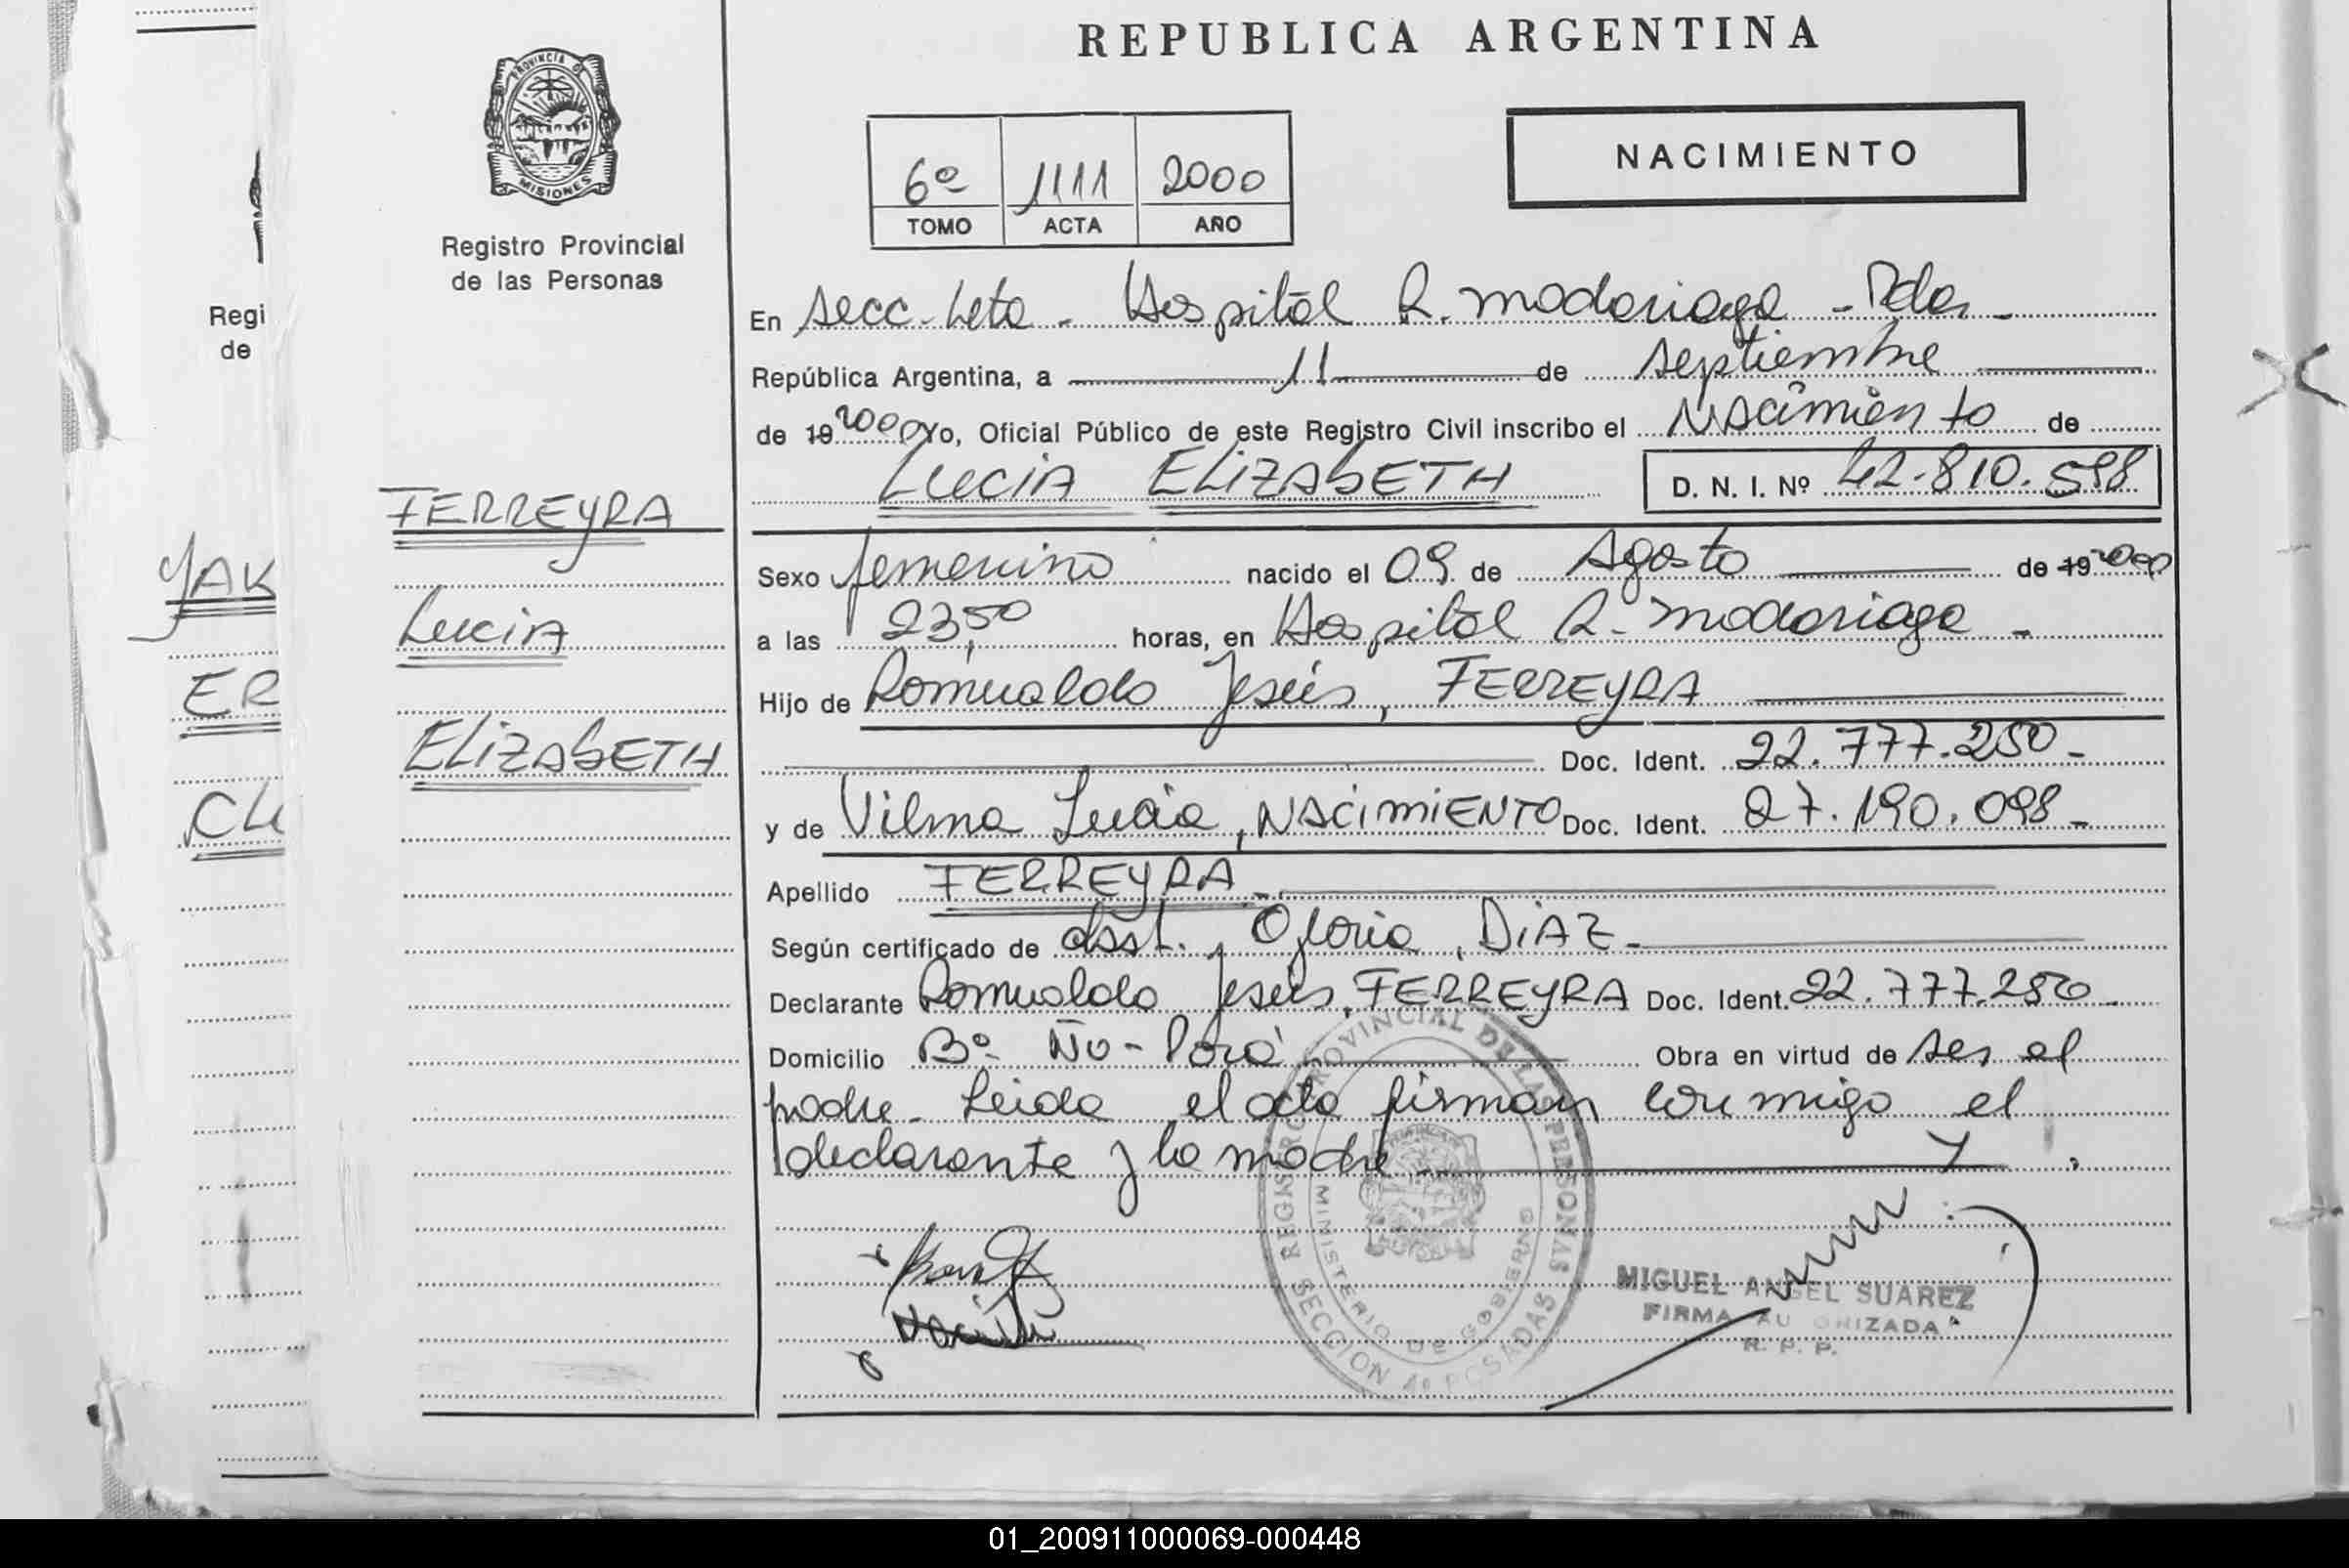 REPUBLICA ARGENTINA
PROVINCIA D
MISIONES
Registro Provincial
de las Personas
6º 1111 2000
TOMO ACTA AÑO
NACIMIENTO
Regi
de
En Secc. 4ta - Hospital R. Madariaga - Pdas -
República Argentina, a 11 de septiembre
de 19 2000 Yo, Oficial Público de este Registro Civil inscribo el Nacimiento de
LUCIA ELIZABETH D. N. I. Nº 42.810.598
FERREYRA
Lucia
ELIZABETH
YAK
ER
CL
Sexo femenino nacido el 09 de Agosto de 19 2000
a las 23,50 horas, en Hospital R. Madariaga -
Hijo de Romualdo Jesús, FERREYRA
Doc. Ident. 22.777.250 -
y de Vilma Lucia, NACIMIENTO Doc. Ident. 27.190.098 -
Apellido FERREYRA -
Según certificado de Obst. Gloria, DIAZ -
Declarante Romualdo Jesús, FERREYRA Doc. Ident. 22.777.250 -
Domicilio Bº Ñu-Porá Obra en virtud de ser el
padre - Leida el acta firman conmigo el
declarante y la madre
REGISTRO PROVINCIAL DE LAS PERSONAS
MINISTERIO DE GOBIERNO
SECCION 4º POSADAS
MIGUEL ANGEL SUAREZ
FIRMA AU ORIZADA
R. P. P.
01_200911000069-000448